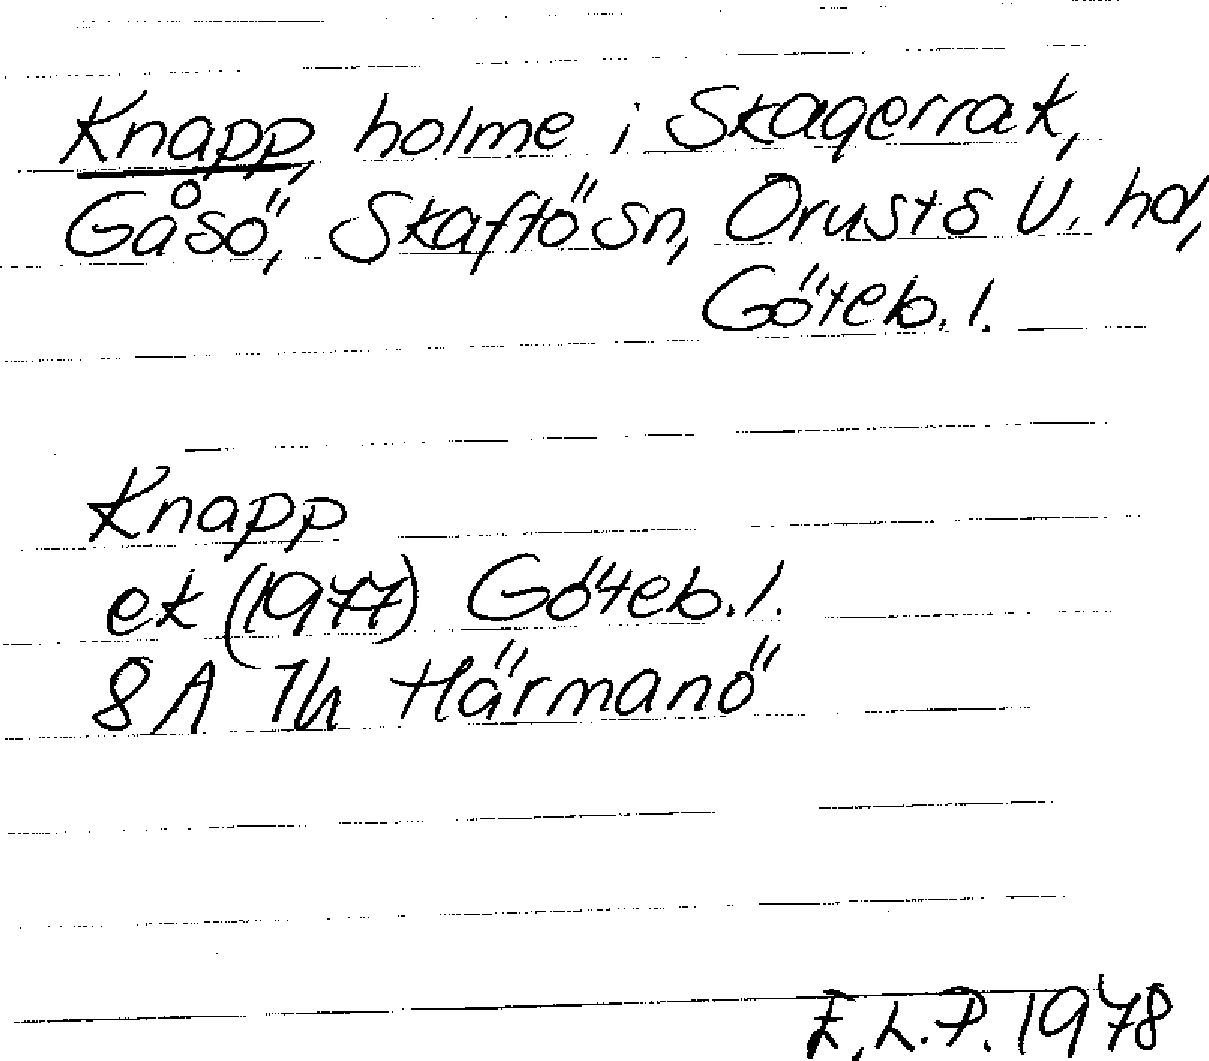 Knapp, holme i Skagerrak,
Gåsö, Skaftö sn, Orusts V. hd,
Göteb. l.
Knapp
ek (1977) Göteb. l.
8A 7h Härmanö
E.L.P. 1978